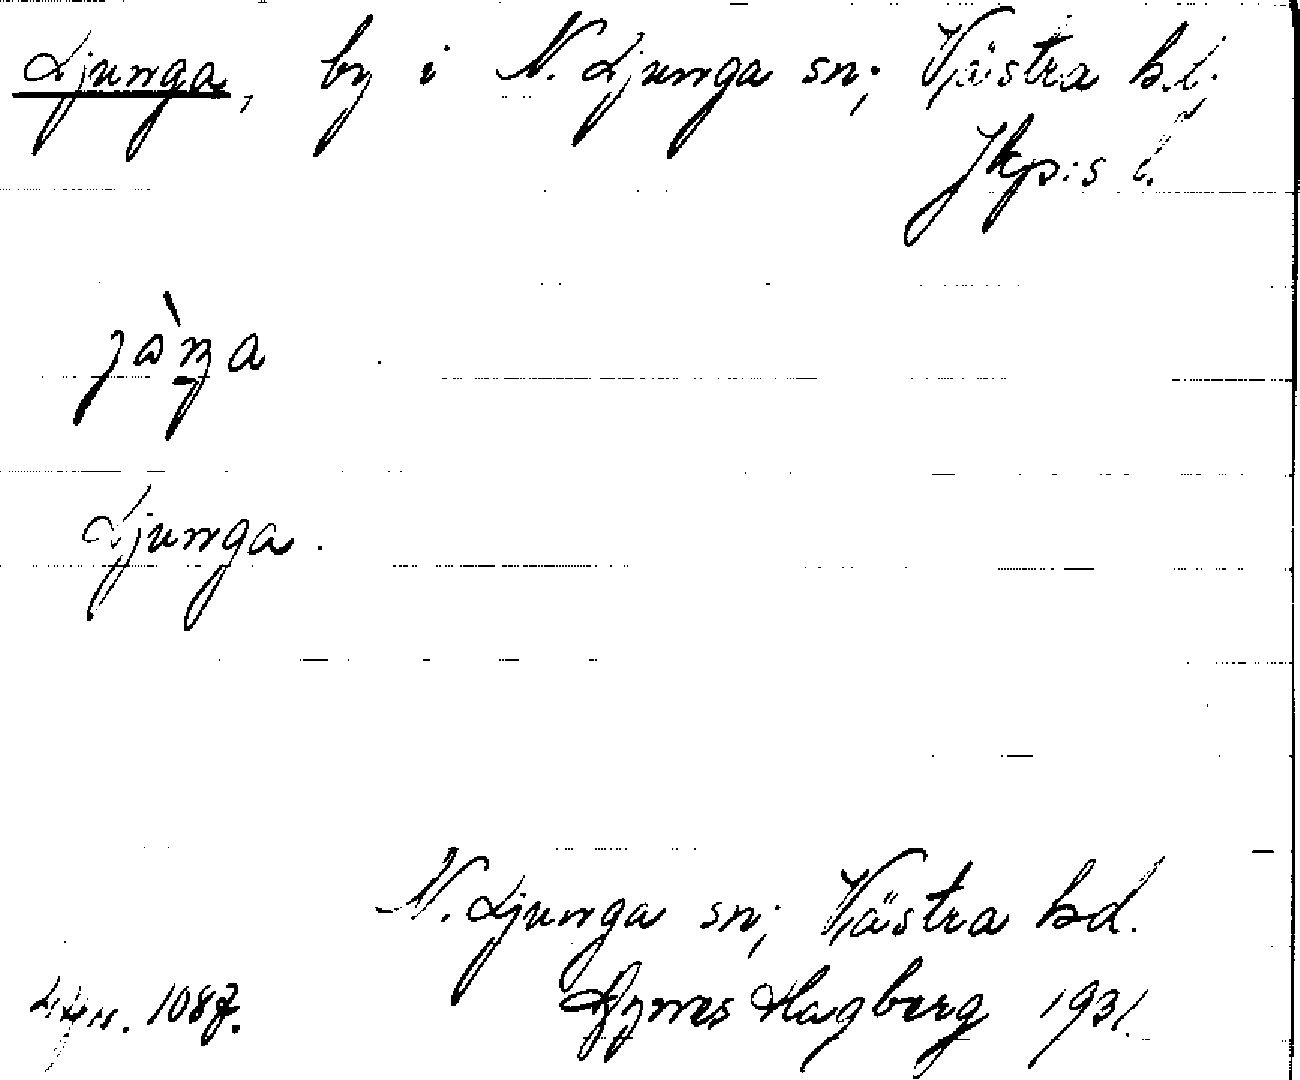 Ljunga, by i N. Ljunga sn; Västra hd;
Jkp:s l.
Ljunga.
N. Ljunga sn; Västra hd.
Agnes Hagberg 1931.